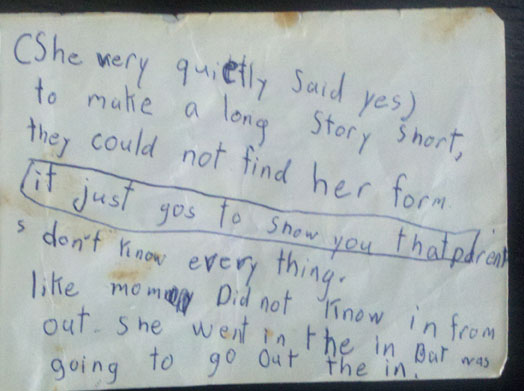 (She very quietly said yes)
to make a long story short,
they could not find her form.
it just gos to show you that parent
s don't know every thing.
like mommy Did not know in from
out. she went in the in But was
going to go out the in.